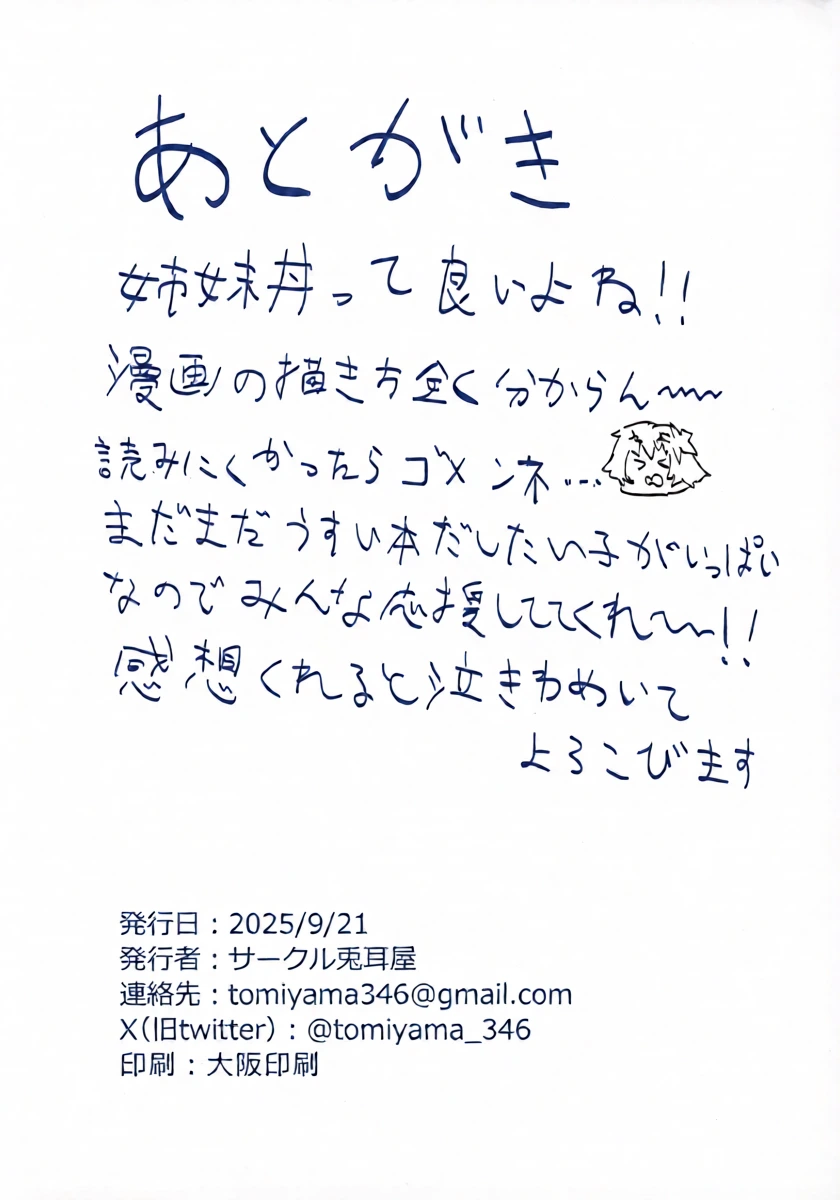 あとがき
姉妹丼って良いよね!!
漫画の描き方全く分からん〜〜
読みにくかったらゴメンネ…
まだまだうすい本だしたい子がいっぱい
なのでみんな応援しててくれ〜〜!!
感想くれると泣きわめいて
よろこびます
発行日：2025/9/21
発行者：サークル兎耳屋
連絡先：tomiyama346@gmail.com
X（旧twitter）：@tomiyama_346
印刷：大阪印刷